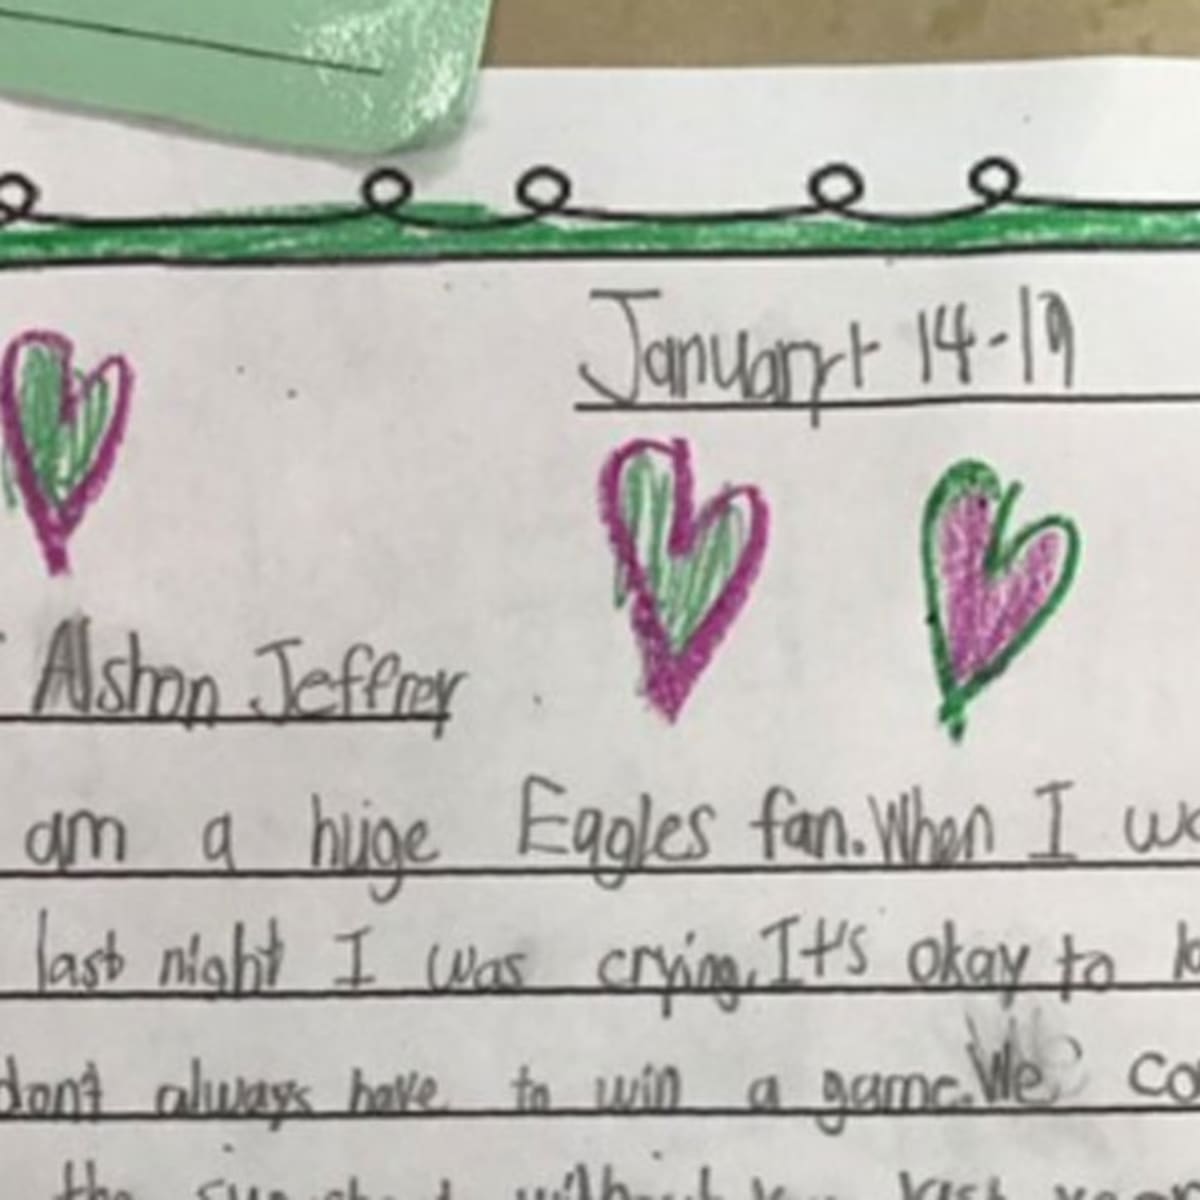 Januaryt 14-19
Alshon Jeffrey
am a huge Eagles fan. When I
last night I was crying. It's okay to
don't always have to win a game. We
the without last